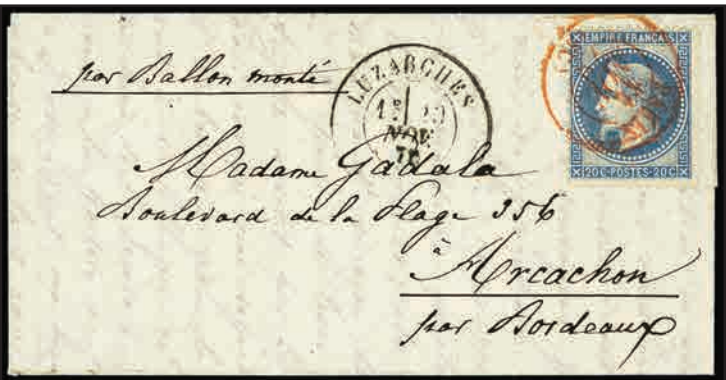 par Ballon monté
LUZARCHES
NOV.
70
EMPIRE FRANÇAIS
20 C·POSTES·20 C
Madame Gadala
Boulevard de la Plage 356
à
Arcachon
par Bordeaux